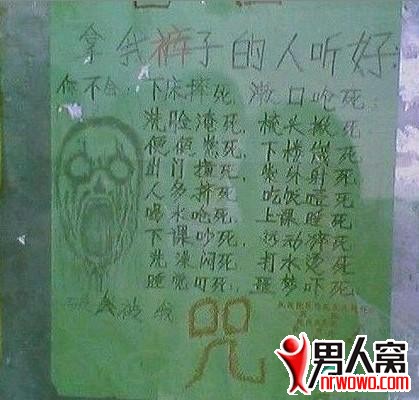 拿我裤子的人听好
你不会 下床摔死, 漱口呛死,
洗脸淹死, 梳头揪死,
便便熏死, 下楼
出门撞死, 射死
人多挤死, 吃饭噎死
喝水呛死, 上课睡死
下课吵死, 运动猝死
洗澡闷死, 打水烫死
睡觉盯死, 噩梦吓死
会被我
咒
男人窝
nrwowo.com